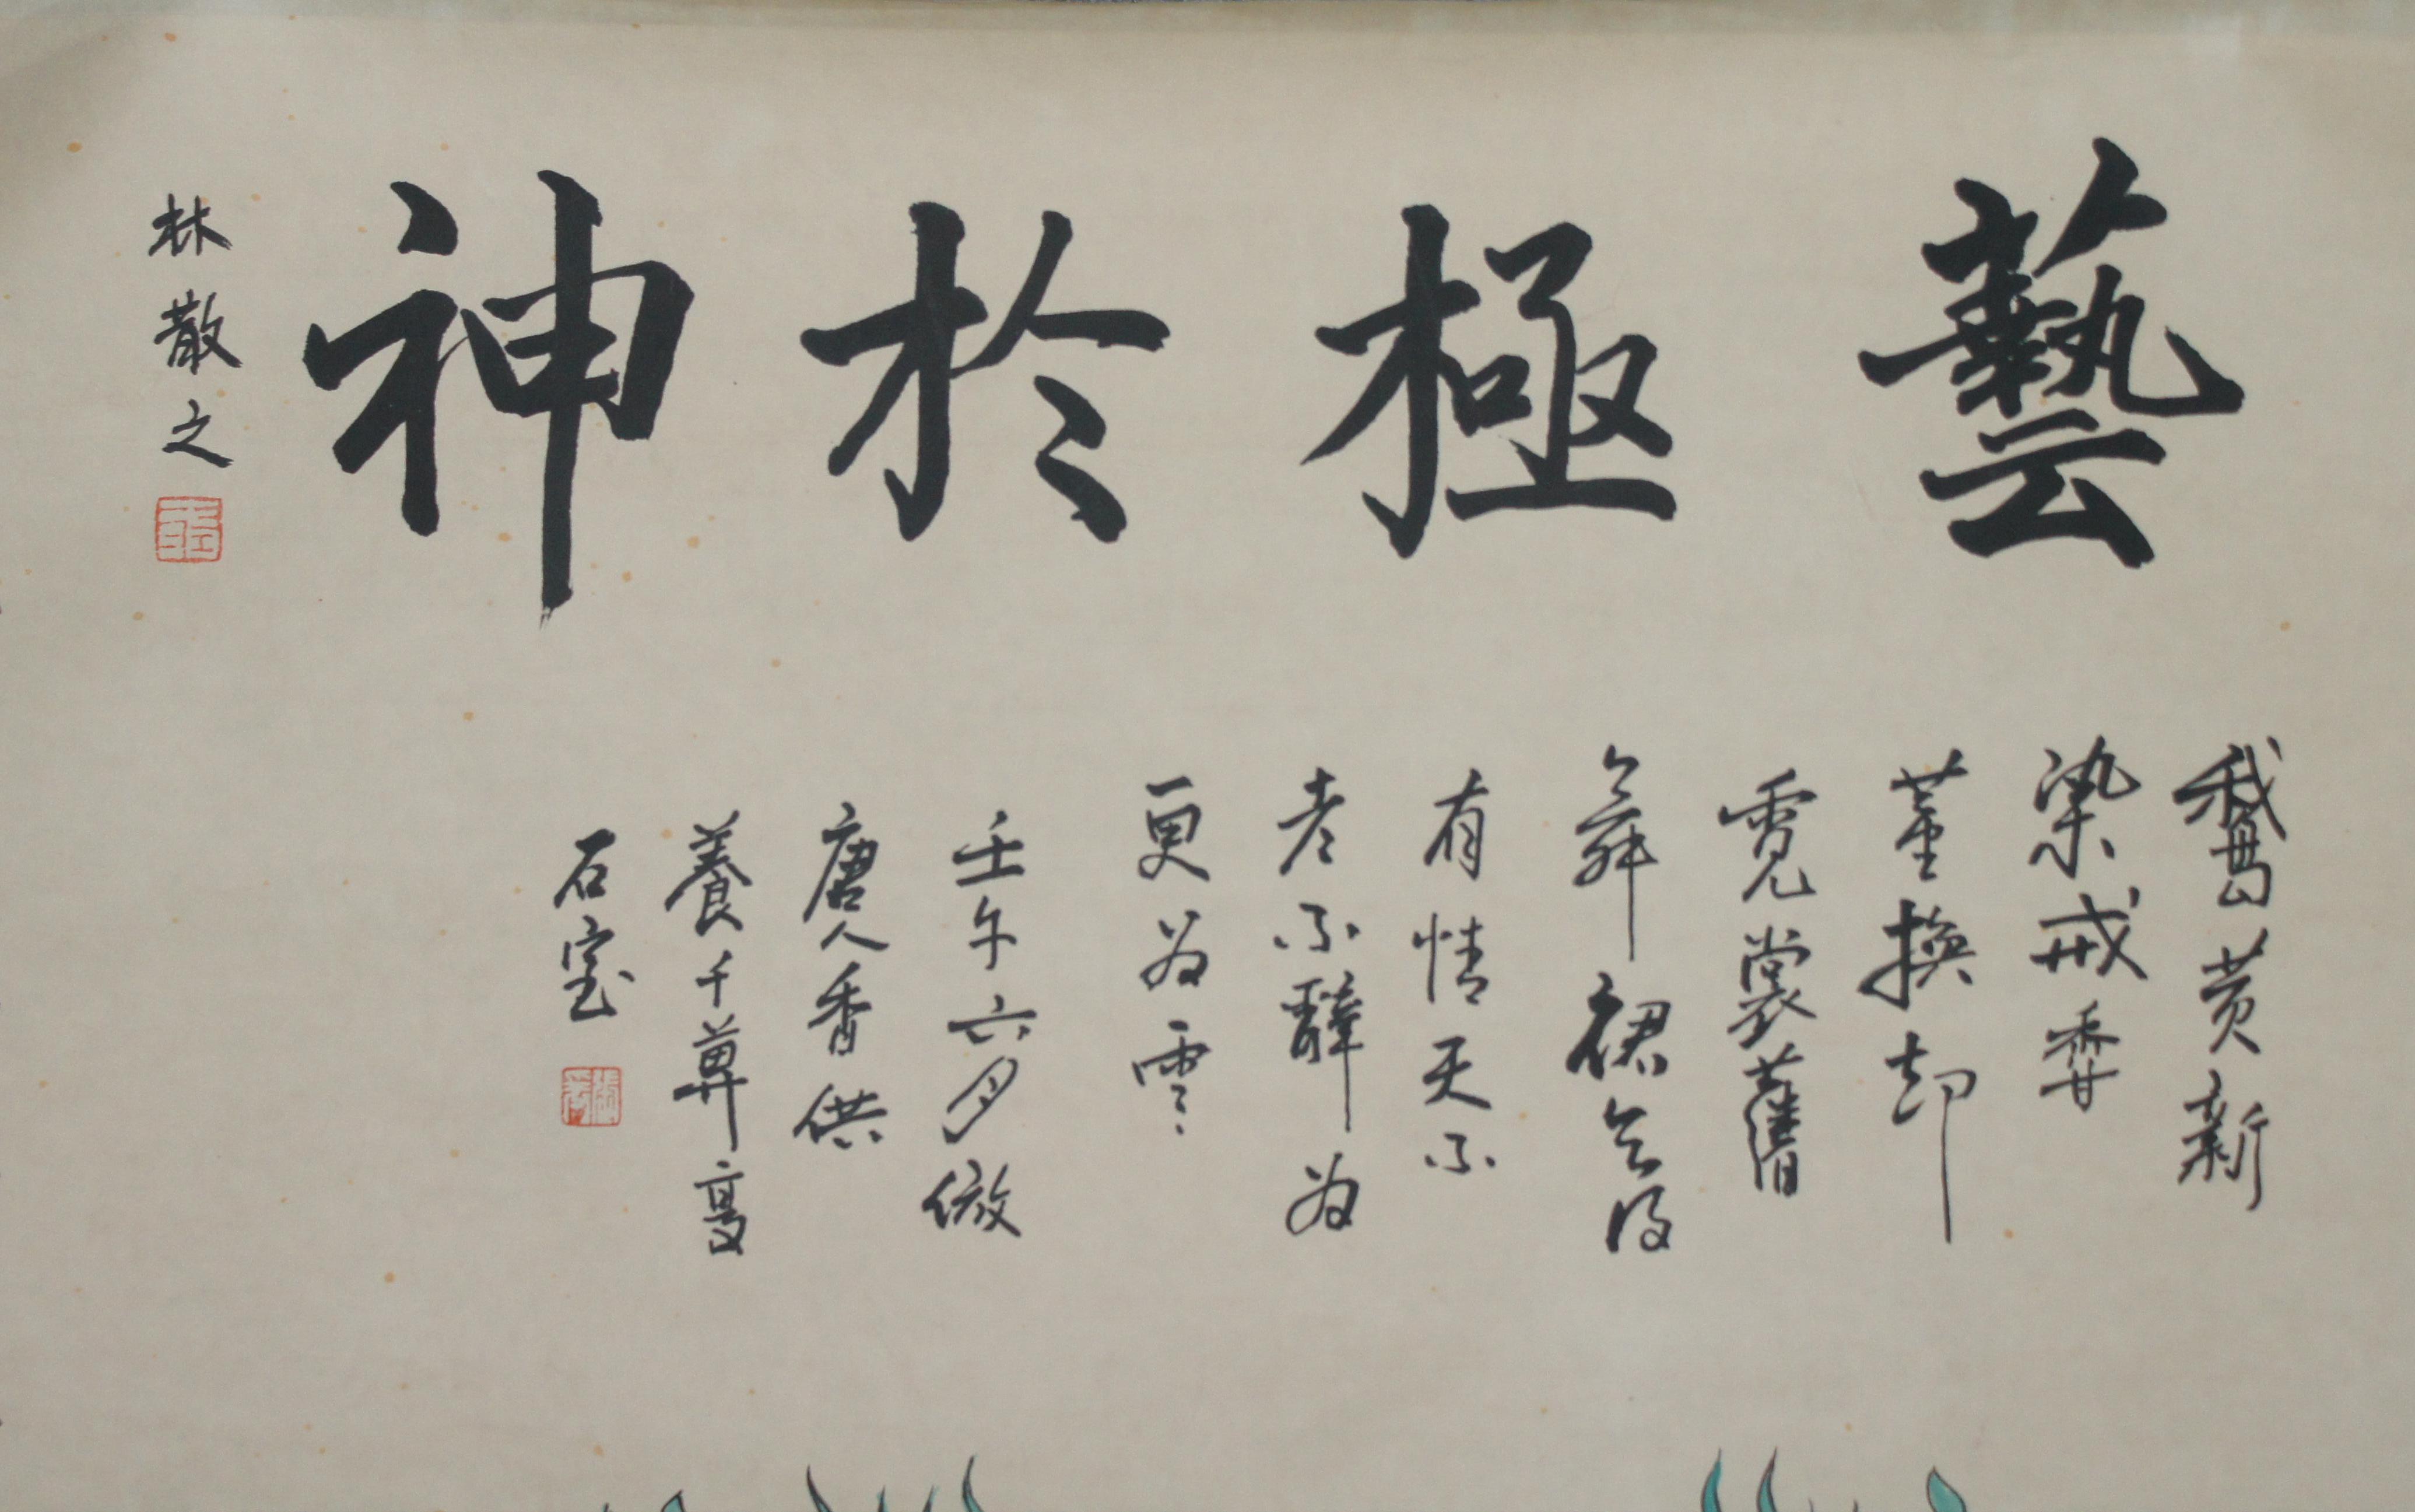 藝極於神
林散之
鵞黃新
染戒香
薰換却
霓裳舊
舞裙乞得
有情天不
老不辭為
更為雲
壬午六月倣
唐人香供
養千尊
石室